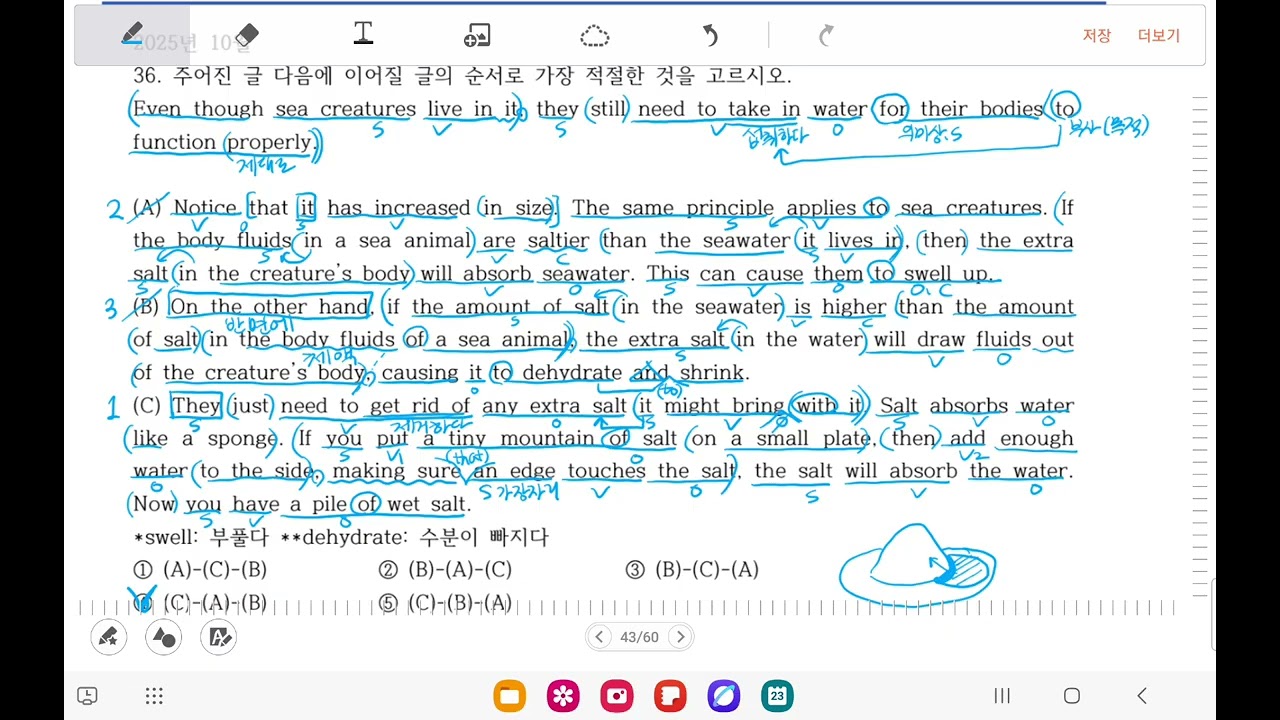 2025년 10월
저장 더보기
36. 주어진 글 다음에 이어질 글의 순서로 가장 적절한 것을 고르시오.
Even though sea creatures live in it, they still need to take in water for their bodies to
S V S V 섭취하다 O 의미상.S 부사(목적)
function properly.
제대로
2 (A) Notice that it has increased in size. The same principle applies to sea creatures. If
the body fluids in a sea animal are saltier than the seawater it lives in, then the extra
salt in the creature's body will absorb seawater. This can cause them to swell up.
3 (B) On the other hand, if the amount of salt in the seawater is higher than the amount
반면에
of salt in the body fluids of a sea animal, the extra salt in the water will draw fluids out
체액
of the creature's body, causing it to dehydrate and shrink.
(to)
1 (C) They just need to get rid of any extra salt it might bring with it. Salt absorbs water
제거하다
like a sponge. If you put a tiny mountain of salt on a small plate, then add enough
(that)
water to the side, making sure an edge touches the salt, the salt will absorb the water.
S 가장자리 V O S V O
Now you have a pile of wet salt.
S V O
*swell: 부풀다 **dehydrate: 수분이 빠지다
① (A)-(C)-(B) ② (B)-(A)-(C) ③ (B)-(C)-(A)
(C)-(A)-(B) ⑤ (C)-(B)-(A)
43/60
23